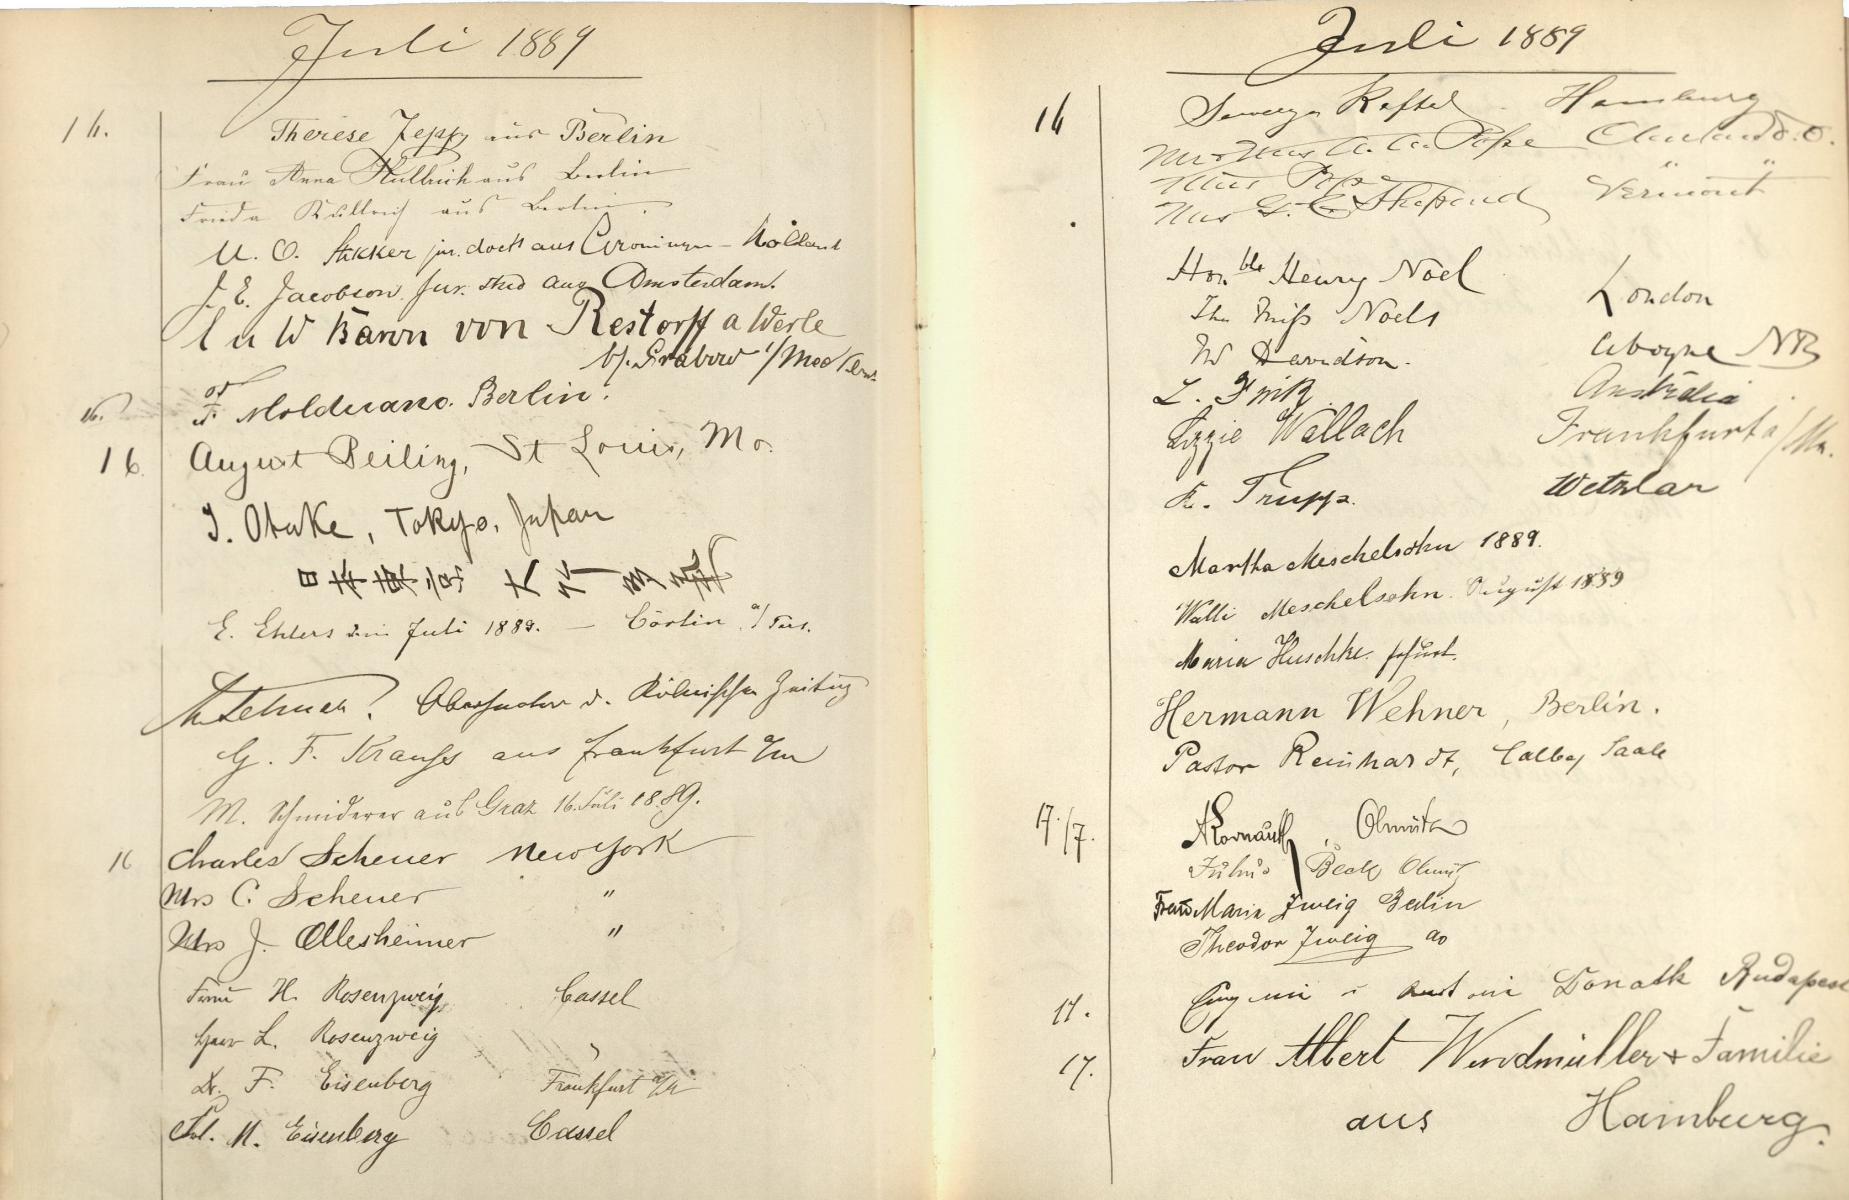 Juli 1889
16.
Therese Jeppy aus Berlin
Frau Anna Kullrich aus Berlin
Frieda Kullrich aus Berlin.
M. O. jur. doct aus Groningen – Holland
J. E. Jacobson jur. stud aus Amsterdam.
von Restorff a Werle
b/. Grabow i/
16.
F. Berlin.
16
August Beiling, St Louis, Mo.
J. Otake, Tokyo, Japan
日本
E. Ehlers im Juli 1889. – Cörlin a/ Pers.
d. Kölnische Zeitung
G. F. Krauss aus Frankfurt a/m
M. Schmiderer aus Graz 16. Juli 1889.
16
Charles Scheuer New York
Mrs C. Scheuer "
Mrs J. Ollesheimer "
Frau H. Rosenzweig Cassel
Herr L. Rosenzweig "
Dr. F. Eisenberg Frankfurt a/M
Frl. M. Eisenberg Cassel
Juli 1889
16
Hamburg
Mr & Mrs A. A. Pope Cleveland O.
Miss Pope
Mrs G. C. Shepard Vermont
Hon.ble Henry Noel
London
The Miss Noels
W Davidson. Aboyne NB
L. Australia
Lizzie Wallach Frankfurt a/M.
K. Trupp. Wetzlar
Martha Meschelsohn 1889.
Walli Meschelsohn. August 1889
Maria Huschke. Erfurt.
Hermann Wehner, Berlin.
Pastor Reinhardt, Calbe, Saale
17./7.
Kornauth, Olmütz
Julius Beck Olmütz
Frau Maria Zweig Berlin
Theodor Zweig do
17.
Donath Budapest
17.
Frau Albert Windmüller & Familie
aus Hamburg.